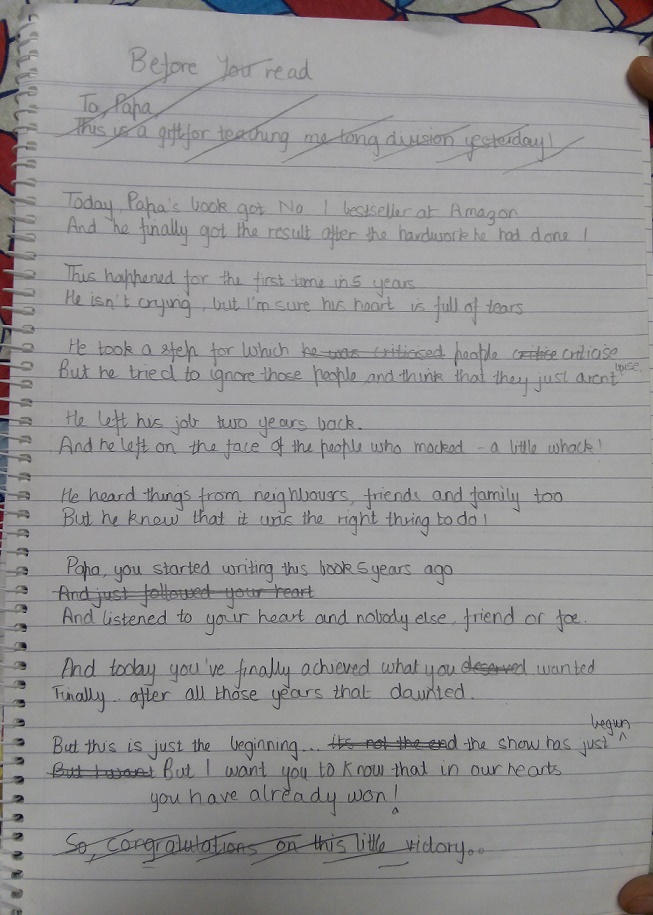 Before You read
To, Papa
This is a gift for teaching me long division yesterday!
Today, Papa's book got No 1 bestseller at Amazon
And he finally got the result after the hardwork he had done !
This happened for the first time in 5 years
He isn't crying, but I'm sure his heart is full of tears
He took a step for which he was criticised people critise criticise
But he tried to ignore those people and think that they just arent wise
He left his job two years back.
And he left on the face of the people who mocked - a little whack!
He heard things from neighbours, friends and family too
But he knew that it was the right thring to do!
Papa, you started writing this book 5 years ago
And just followed your heart
And listened to your heart and nobody else, friend or foe.
And today you've finally achieved what you deserved wanted
Finally.. after all those years that daunted.
But this is just the beginning... It's not the end the show has just begun
But I want But I want you to know that in our hearts
you have already won!
So, congratulations on this little victory..